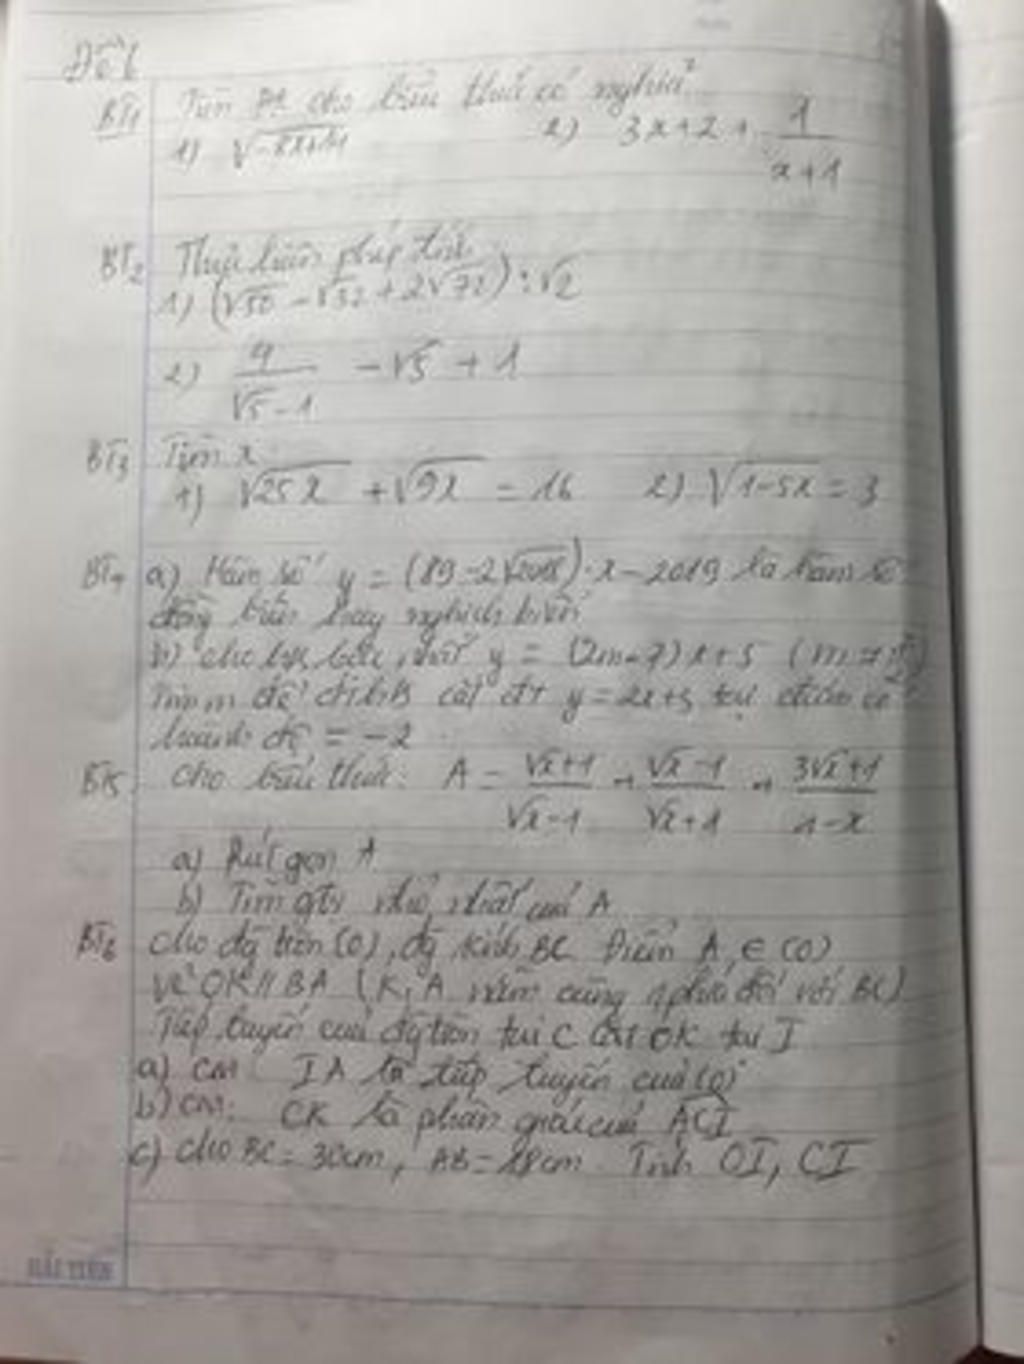 Đề 6
BT1 Tìm ĐK cho biểu thức có nghĩa
1) 2) 3x+2+ 1/(x+1)
BT2 Thực hiện phép tính
1) (√50 - √32 + 2√72) : √2
2) 4/(√5-1) - √5 + 1
BT3 Tìm x
1) √25x + √9x = 16 2) √1-5x = 3
BT4 a) Hàm số y = (89-2√2018).x-2019 là hàm số
đồng biến hay nghịch biến
b) cho bậc nhất y = (2m-7)x+5
Tìm m để cắt đt y=2x+3 tại điểm có
hoành độ = -2
BT5 Cho biểu thức: A = (√x+1)/(√x-1) + (√x-1)/(√x+1) + (3√x+1)/(1-x)
a) Rút gọn A
b) Tìm gtr nhỏ nhất của A
BT6 cho đg tròn (O), đg kính BC Điểm A ∈ (O)
vẽ OK // BA (K, A nằm cùng phía đối với BC)
Tiếp tuyến của đg tròn tại C cắt OK tại I
a) CM IA là tiếp tuyến của (O)
b) CM: CK là phân giác của ACI
c) cho BC = 30cm, AB = 18cm Tính OI, CI
HẢI TIẾN